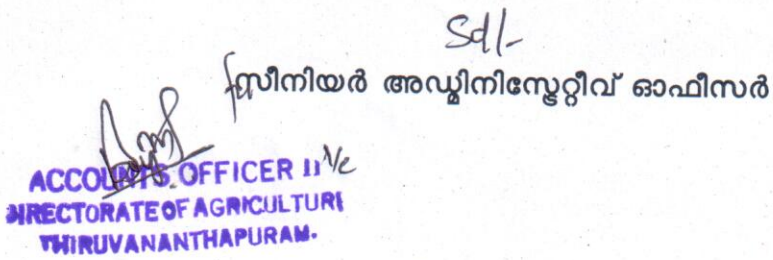 Sd/-
സീനിയർ അഡ്മിനിസ്ട്രേറ്റീവ് ഓഫീസർ
ACCOUNTS OFFICER II I/c
DIRECTORATE OF AGRICULTURE
THIRUVANANTHAPURAM.